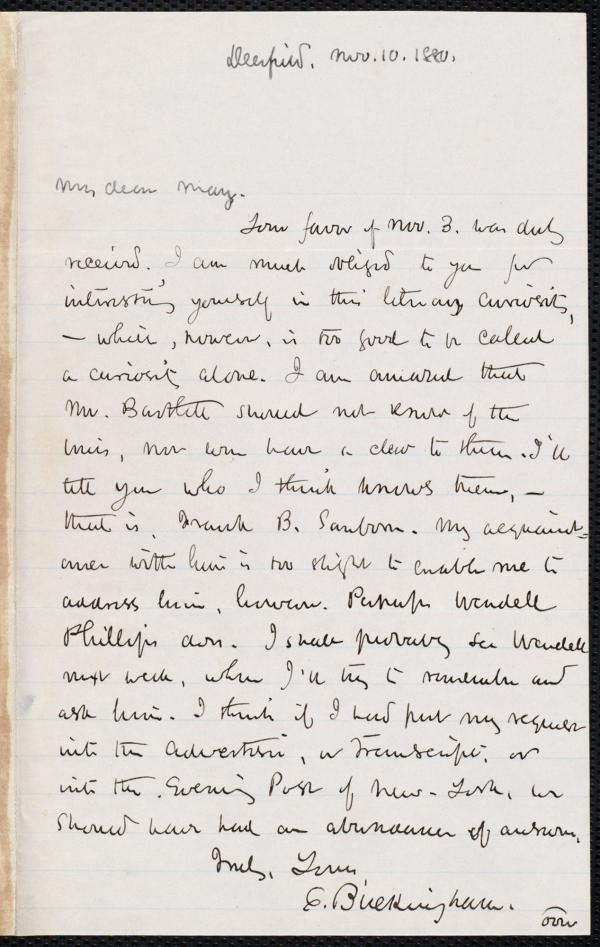 Deerfield. Nov. 10. 1880.
My dear May.
Your favor of Nov. 3. was duly
received. I am much obliged to you for
interesting yourself in this literary curiosity,
— which, however, is too good to be called
a curiosity alone. I am amazed that
Mr. Bartlett should not know of the
lines, nor even have a clew to them. I'll
tell you who I think knows them, —
that is, Frank B. Sanborn. My acquaint-
ance with him is too slight to enable me to
address him, however. Perhaps Wendell
Phillips does. I shall probably see Wendell
next week, when I'll try to remember and
ask him. I think if I had put my request
into the Advertiser, or Transcript, or
into the Evening Post of New-York, we
should have had an abundance of answers.
Truly, Yours,
E. Buckingham.
over